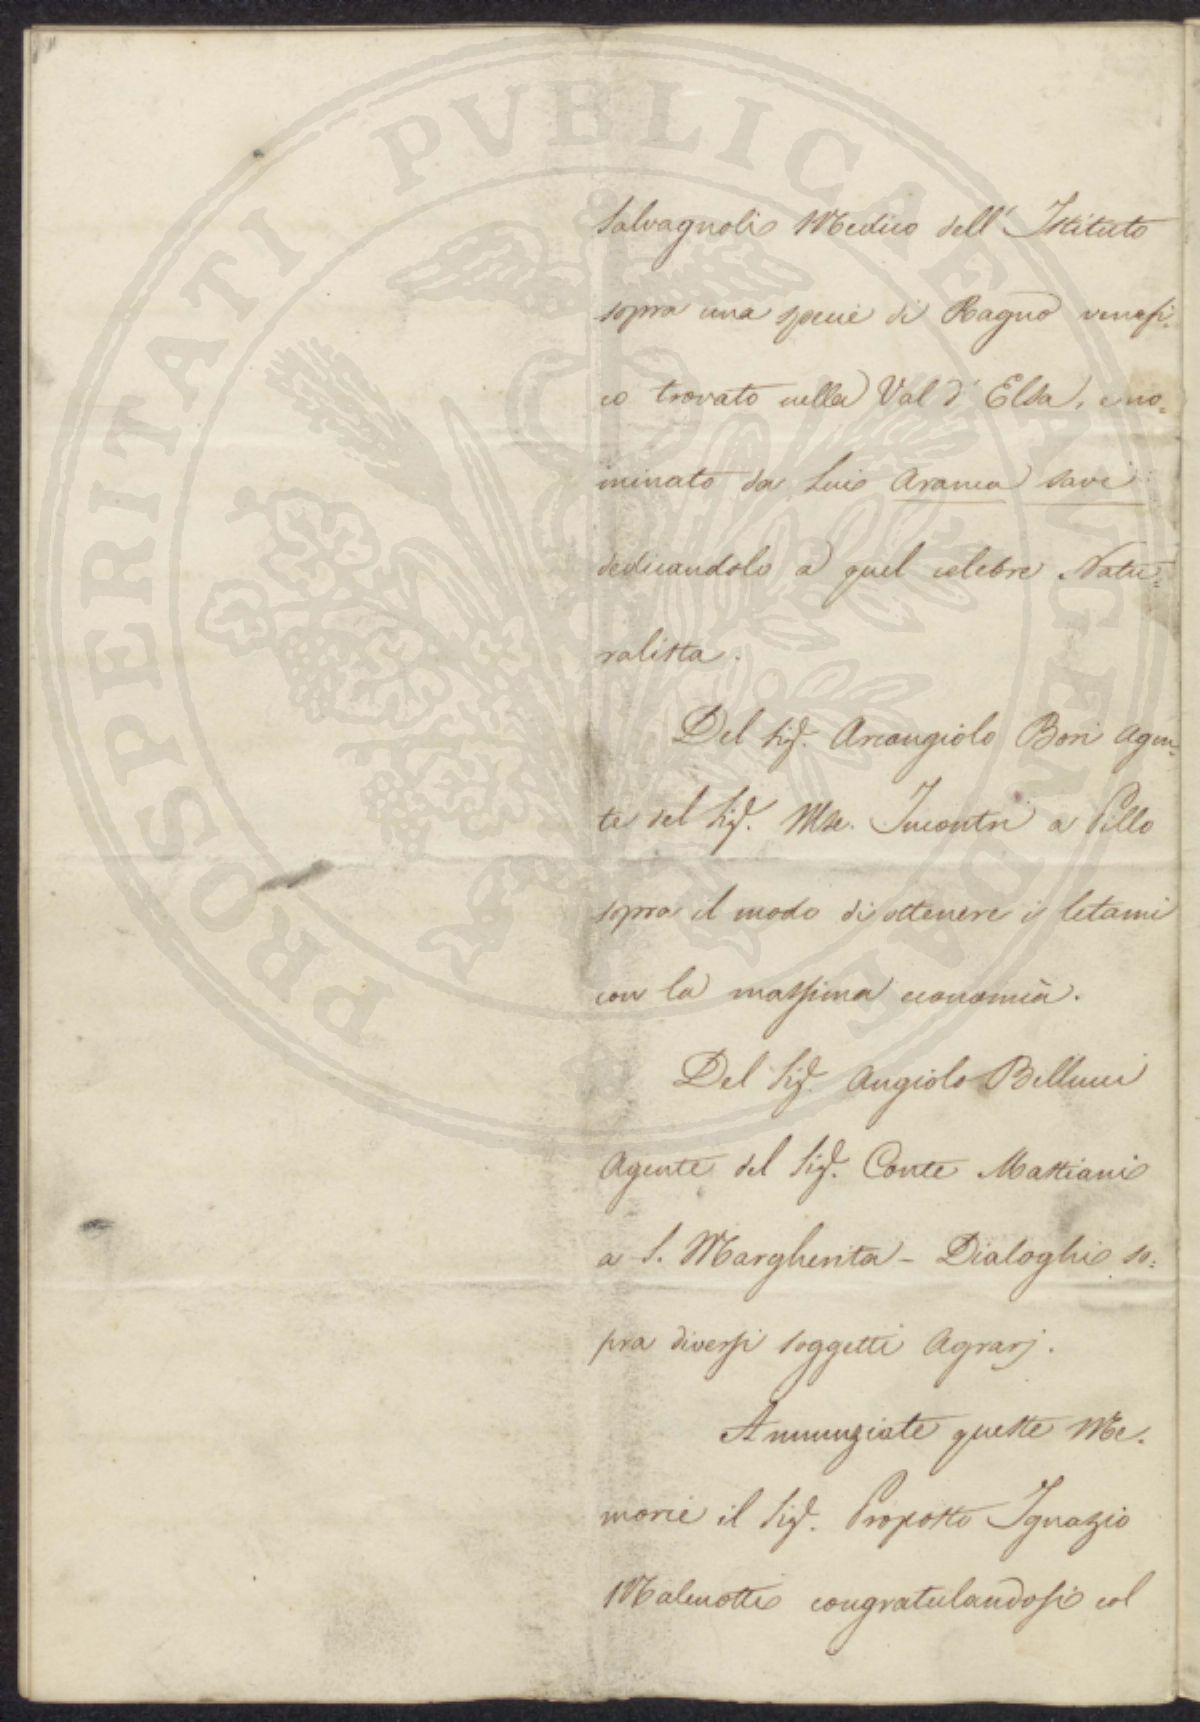 PROSPERITATI PVBLICAE AVGENDAE
Salvagnoli Medico dell' Istituto
sopra una specie di Ragno venefi-
co trovato nella Val d' Elsa, e no=
minato da Lui Aranea Savi
dedicandolo a quel celebre Natu=
ralista.
Del Sig. Arcangiolo Bori Agen=
te del Sig. Mse. Incontri a Pillo
sopra il modo di ottenere i letami
con la massima economia.
Del Sig. Angiolo Bellucci
Agente del Sig. Conte Mastiani
a S. Margherita - Dialoghi so=
pra diversi soggetti Agrarj.
Annunziate queste Me-
morie il Sig. Proposto Ignazio
Malenotti congratulandosi col